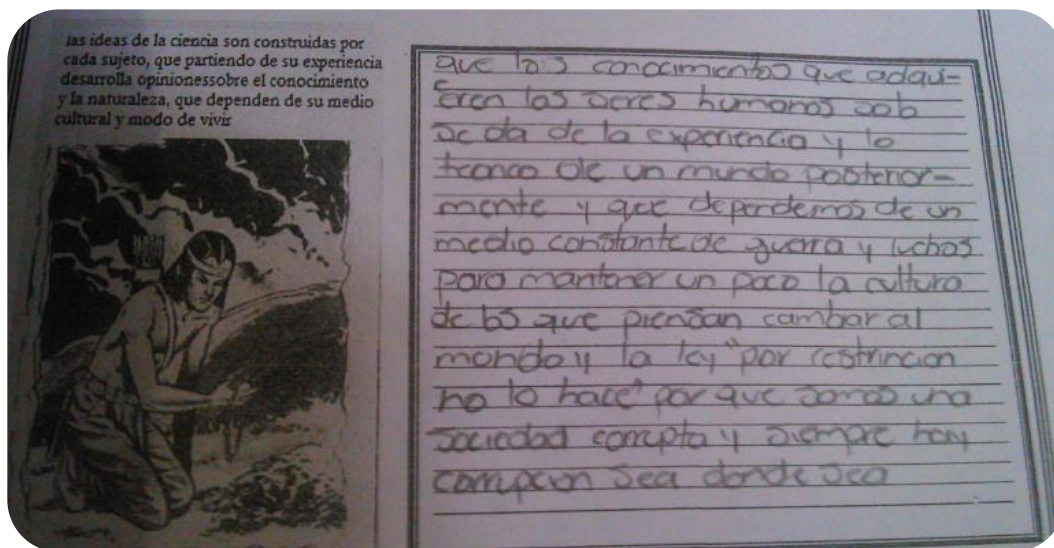 las ideas de la ciencia son construidas por
cada sujeto, que partiendo de su experiencia
desarrolla opinionessobre el conocimiento
y la naturaleza, que dependen de su medio
cultural y modo de vivir
que los conocimientos que adqui-
eren las seres humanos sob
se da de la experiencia y lo
de un mundo posterior-
mente y que dependemos de un
medio constante de guerra y luchas
para mantener un poco la cultura
de los que piensan cambar al
mondo y la ley "por restrincion
no lo hace" por que somos una
sociedad corrupta y siempre hay
corrupcion sea donde sea